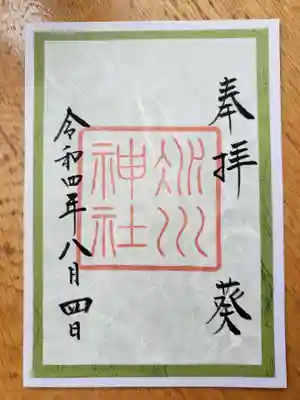 奉拝　葵
氷川
神社
令和四年八月四日